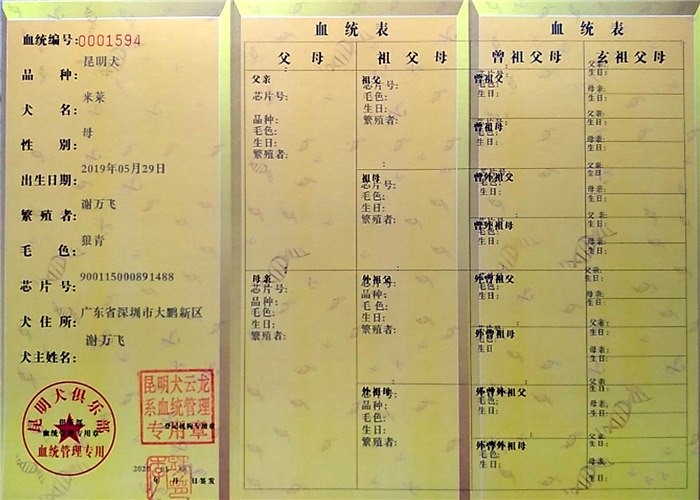 血统编号:0001594
昆明犬
品 种:
米莱
犬 名:
母
性 别:
2019年05月29日
出生日期:
谢万飞
繁 殖 者:
狼青
毛 色:
900115000891488
芯 片 号:
广东省深圳市大鹏新区
犬 住 所:
谢万飞
犬主姓名:
昆明犬俱乐部
血统管理专用章
血统管理专用
昆明犬云龙
系血统管理
专用章
登记机构专用章
2020
年 月 日签发
血 统 表
父 母 祖 父 母
父亲
芯片号:
品种:
毛色:
生日:
繁殖者:
母亲
芯片号:
品种:
毛色:
生日:
繁殖者:
祖父
芯片号:
毛色:
生日:
繁殖者:
祖母
芯片号:
毛色:
生日:
繁殖者:
外祖父
芯片号:
品种:
毛色:
生日:
繁殖者:
外祖母
芯片号:
品种:
毛色:
生日:
繁殖者:
血 统 表
曾 祖 父 母 玄 祖 父 母
曾祖父
毛色:
生日:
曾祖母
毛色:
生日:
曾外祖父
毛色:
生日:
曾外祖母
毛色:
生日:
外曾祖父
毛色:
生日:
外曾祖母
毛色:
生日
外曾外祖父
毛色:
生日:
外曾外祖母
毛色:
生日:
父亲:
生日:
母亲:
生日:
父亲:
生日:
母亲:
生日:
父亲:
生日:
母亲:
生日:
父亲:
生日:
母亲:
生日:
父亲:
生日:
母亲:
生日:
父亲:
生日:
母亲:
生日:
父亲:
生日:
母亲:
生日:
父亲:
生日:
母亲:
生日: